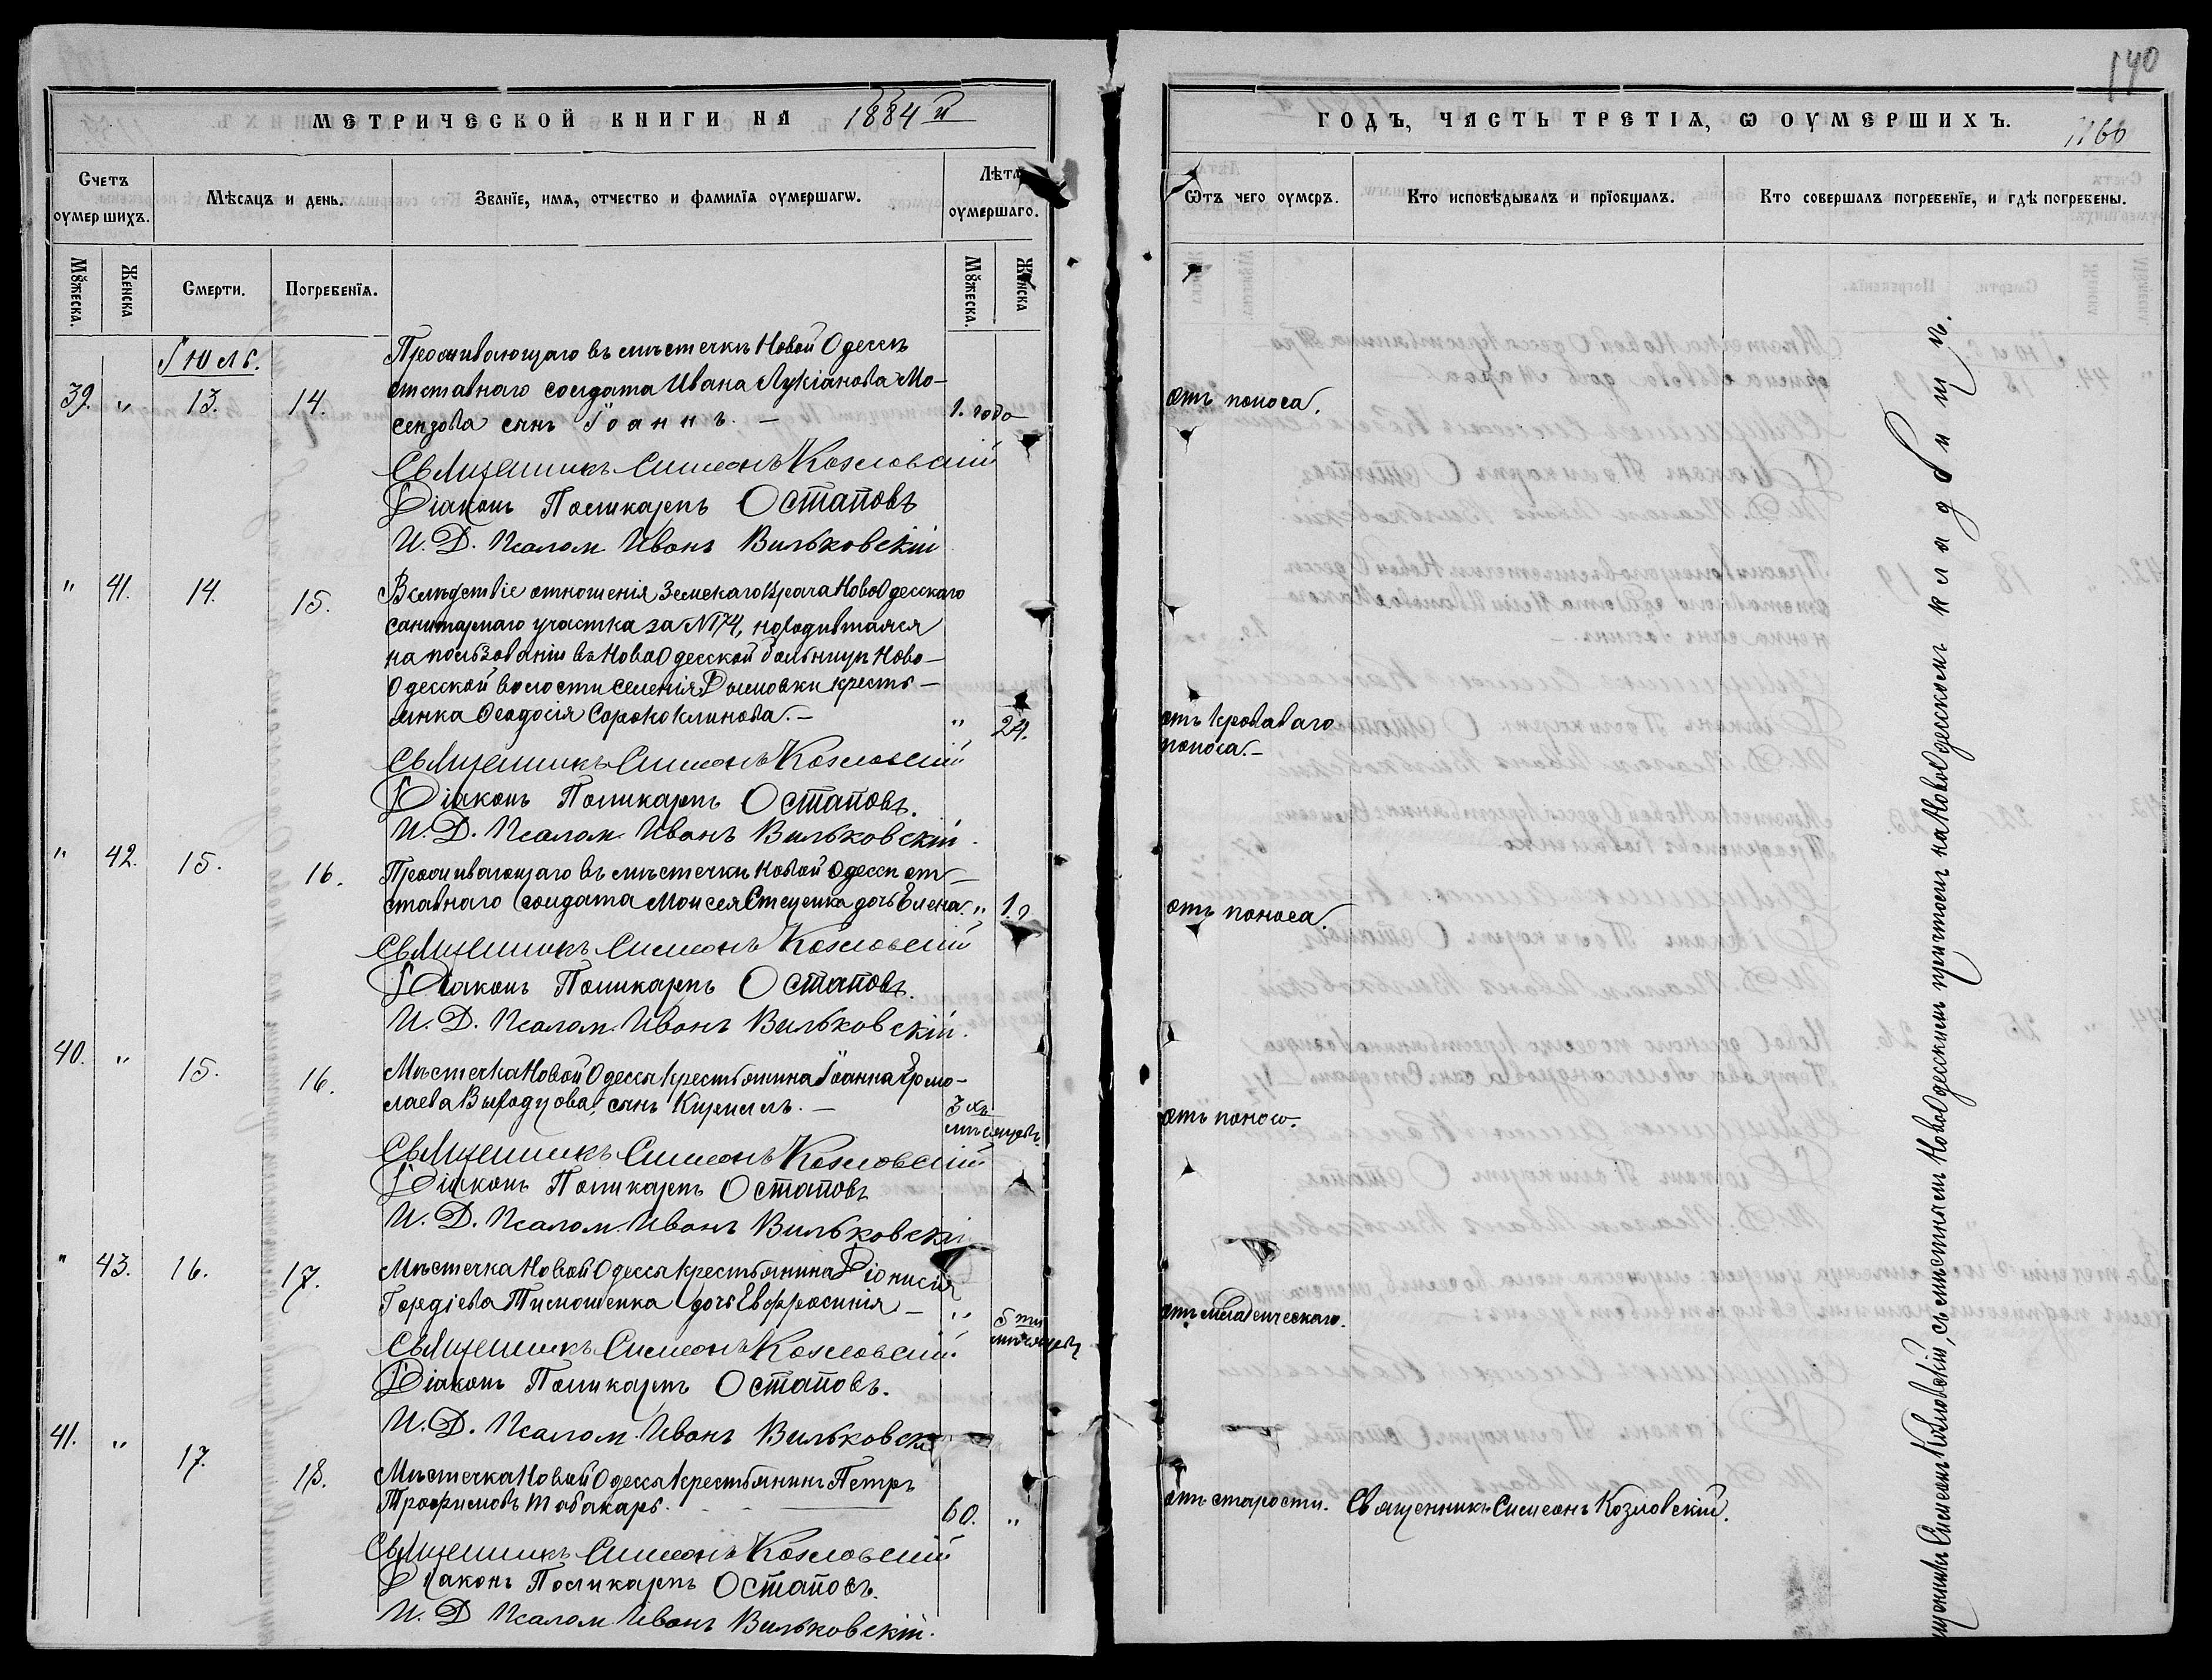 МЕТРИЧЕСКОЙ КНИГИ НА 1884 й
Счетъ оумершихъ.
Мѣсяцъ и день.
Званїе, имя, отчество и фамилїя оумершагѡ.
Лѣта оумершаго.
Мꙋжеска.
Женска
Смерти.
Погребенїя.
Мꙋжеска.
Женска
Іюль.
39. " 13. 14.
Проживающаго въ мѣстечкѣ Новой Одессѣ
отставнаго солдата Ивана Лукіанова Мо-
сензова сынъ Іоаннъ. – 1. года
Священникъ Симеонъ Козловскій
Діаконъ Поликарпъ Остаповъ
И. Д. Псалом. Иванъ Вильковскій
" 41. 14. 15.
Вслѣдствіе отношенія Земскаго Врача НовоОдесскаго
санитарнаго участка за №174, находившаяся
на пользованіи въ НовоОдесской больницѣ Ново-
Одесской волости селенія крестъ-
янка Ѳеодосія Сороколинова. – " 24.
Священникъ Симеонъ Козловскій
Діаконъ Поликарпъ Остаповъ.
И. Д. Псалом. Иванъ Вильковскій.
" 42. 15. 16.
Проживающаго въ мѣстечкѣ Новой Одессѣ от-
ставнаго солдата Моисея Стеценка дочь Елена. " 1.
Священникъ Симеонъ Козловскій
Діаконъ Поликарпъ Остаповъ.
И. Д. Псалом. Иванъ Вильковскій.
40. " 15. 16.
Мѣстечка Новой Одессы крестьянина Іоанна Ермо-
лаева сынъ Кириллъ. – 3 хъ мѣсяцевъ.
Священникъ Симеонъ Козловскій
Діаконъ Поликарпъ Остаповъ
И. Д. Псалом. Иванъ Вильковскі
" 43. 16. 17.
Мѣстечка Новой Одессы крестьянина Діонисія
Гордіева Тимошенка дочь Евфросинія – " 5 ти мѣсяцевъ
Священникъ Симеонъ Козловскій
Діаконъ Поликарпъ Остаповъ.
И. Д. Псалом. Иванъ Вильковскі
41. " 17. 18.
Мѣстечка Новой Одессы крестьянинъ Петръ
Трофимовъ Табакарь. 60. "
Священникъ Симеонъ Козловскій
Діаконъ Поликарпъ Остаповъ.
И. Д Псалом. Иванъ Вильковскій.
140
ГОДЪ, ЧАСТЬ ТРЕТІЯ, Ѡ ОУМЕРШИХЪ.
1160
Ѿтъ чего оумеръ.
Кто исповѣдывалъ и прїобщалъ.
Кто совершалъ погребенїе, и гдѣ погребены.
отъ поноса.
отъ кроваваго
поноса. –
отъ поноса.
отъ поноса.
отъ младенческаго.
отъ старости. Священникъ Симеонъ Козловскій.
Симеонъ Козловскій, съ мѣстнымъ НовоОдесскимъ причтомъ на НовоОдесскомъ кладбищѣ.